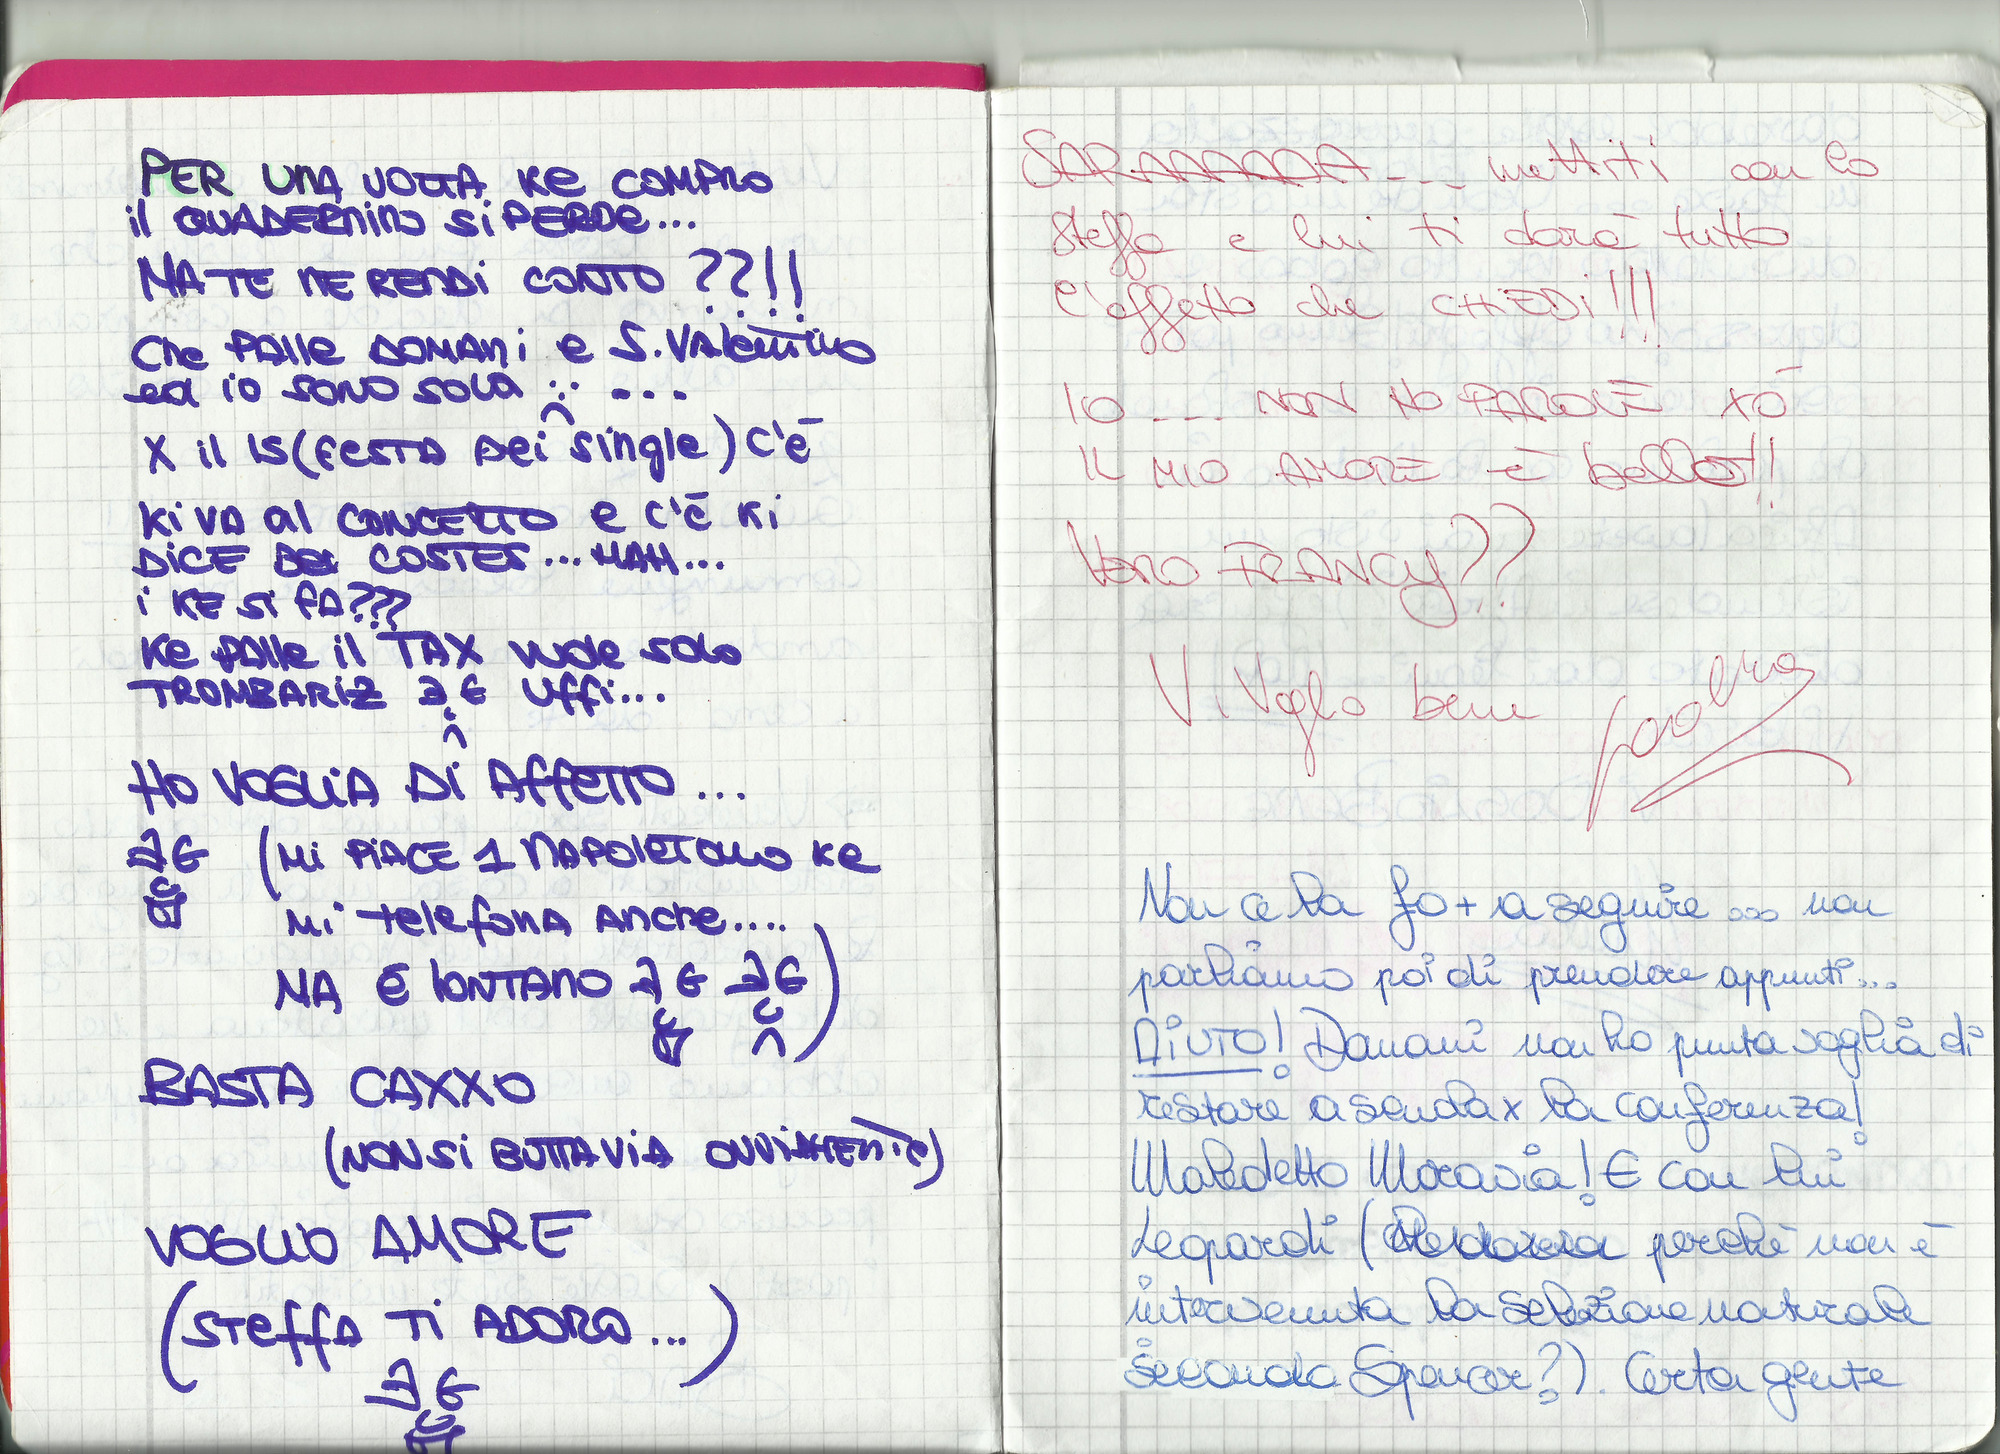 PER UNA VOLTA KE COMPRO
il QUADERNINO SI PERDE...
MA TE NE RENDI CONTO ??!!
Che PAlle DOMANI e S.VAlentino
ed io SONO SOLA :: ...
X il 15 (FESTA DEI single) C'è
Ki VA al CONCERTO e c'è Ki
DICE DEL COSTES...MAH...
i KE SI FA???
Ke PAlle il TAX VUOLE SOLO
TROMBARIZ Uffi...
HO VOGLIA DI AffETTO...
(MI PIACE 1 NAPOLETANO Ke
MI TELEfONA ANChe....
MA E lONTANO )
BASTA CAXXO
(NON SI BUTTA VIA OVVIAMENTE)
VOGLIO AMORE
(STEffA TI ADORO...)
SARAAAAAA --- mettiti con lo
Steffa e lui ti darà tutto
l'affetto che CHIEDI!!!
IO --- NON HO PAROLE XÒ
IL MIO AMORE è bello!!!
VERO FRANCY??
Vi Voglo bene
Non ce la fo + a seguire ... non
parliamo poi di prendere appunti...
AIUTO! Domani non ho punta voglia di
restare a scuola x la conferenza!
Maledetto Moravia! E con lui
Leopardi ( perché non è
intervenuta la selezione naturale
secondo Spencer?). Certa gente